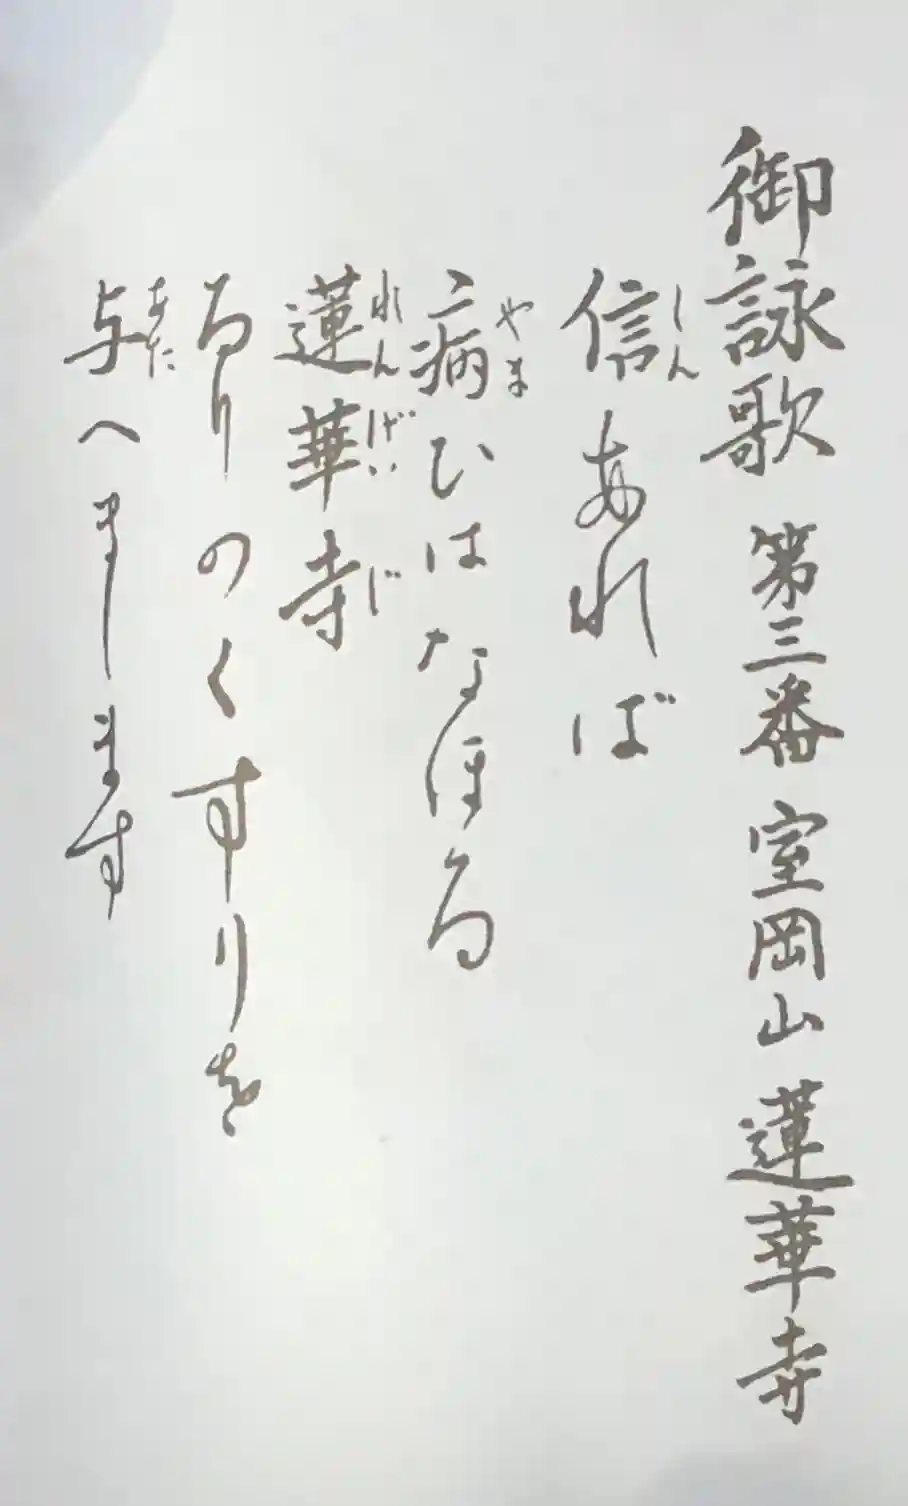 御詠歌 第三番 室岡山 蓮華寺
信あれば
しん
病ひはなほる
やま
蓮華寺
れんげいじ
るりのくすりを
与へまします
あた